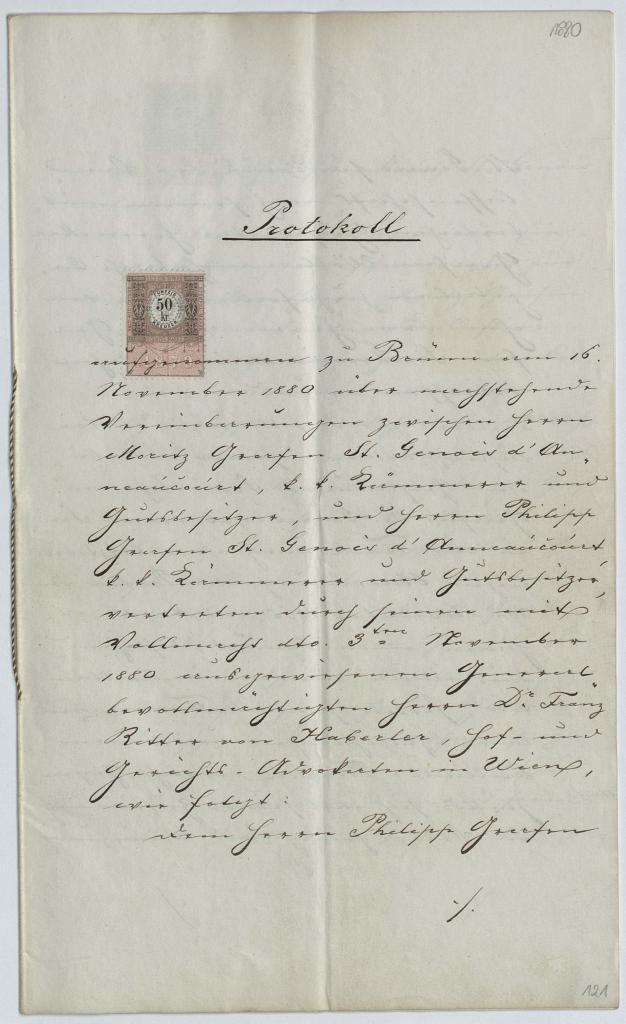 1880
Protokoll
50
kr.
aufgenommen zu Brünn am 16.
November 1880 über nachstehende
Vereinbarungen zwischen Herrn
Moritz Grafen St. Genois d'An-
neaucourt, k. k. Kämmerer und
Gutsbesitzer, und Herrn Philipp
Grafen St. Genois d'Anneaucourt,
k. k. Kämmerer und Gutsbesitzer,
vertreten durch seinen mit
Vollmacht dto. 3ten November
1880 ausgewiesenen General
bevollmächtigten Herrn Dr. Franz
Ritter von Haberler, Hof- und
Gerichts-Advokaten in Wien,
wie folgt:
Dem Herrn Philipp Grafen
./.
121